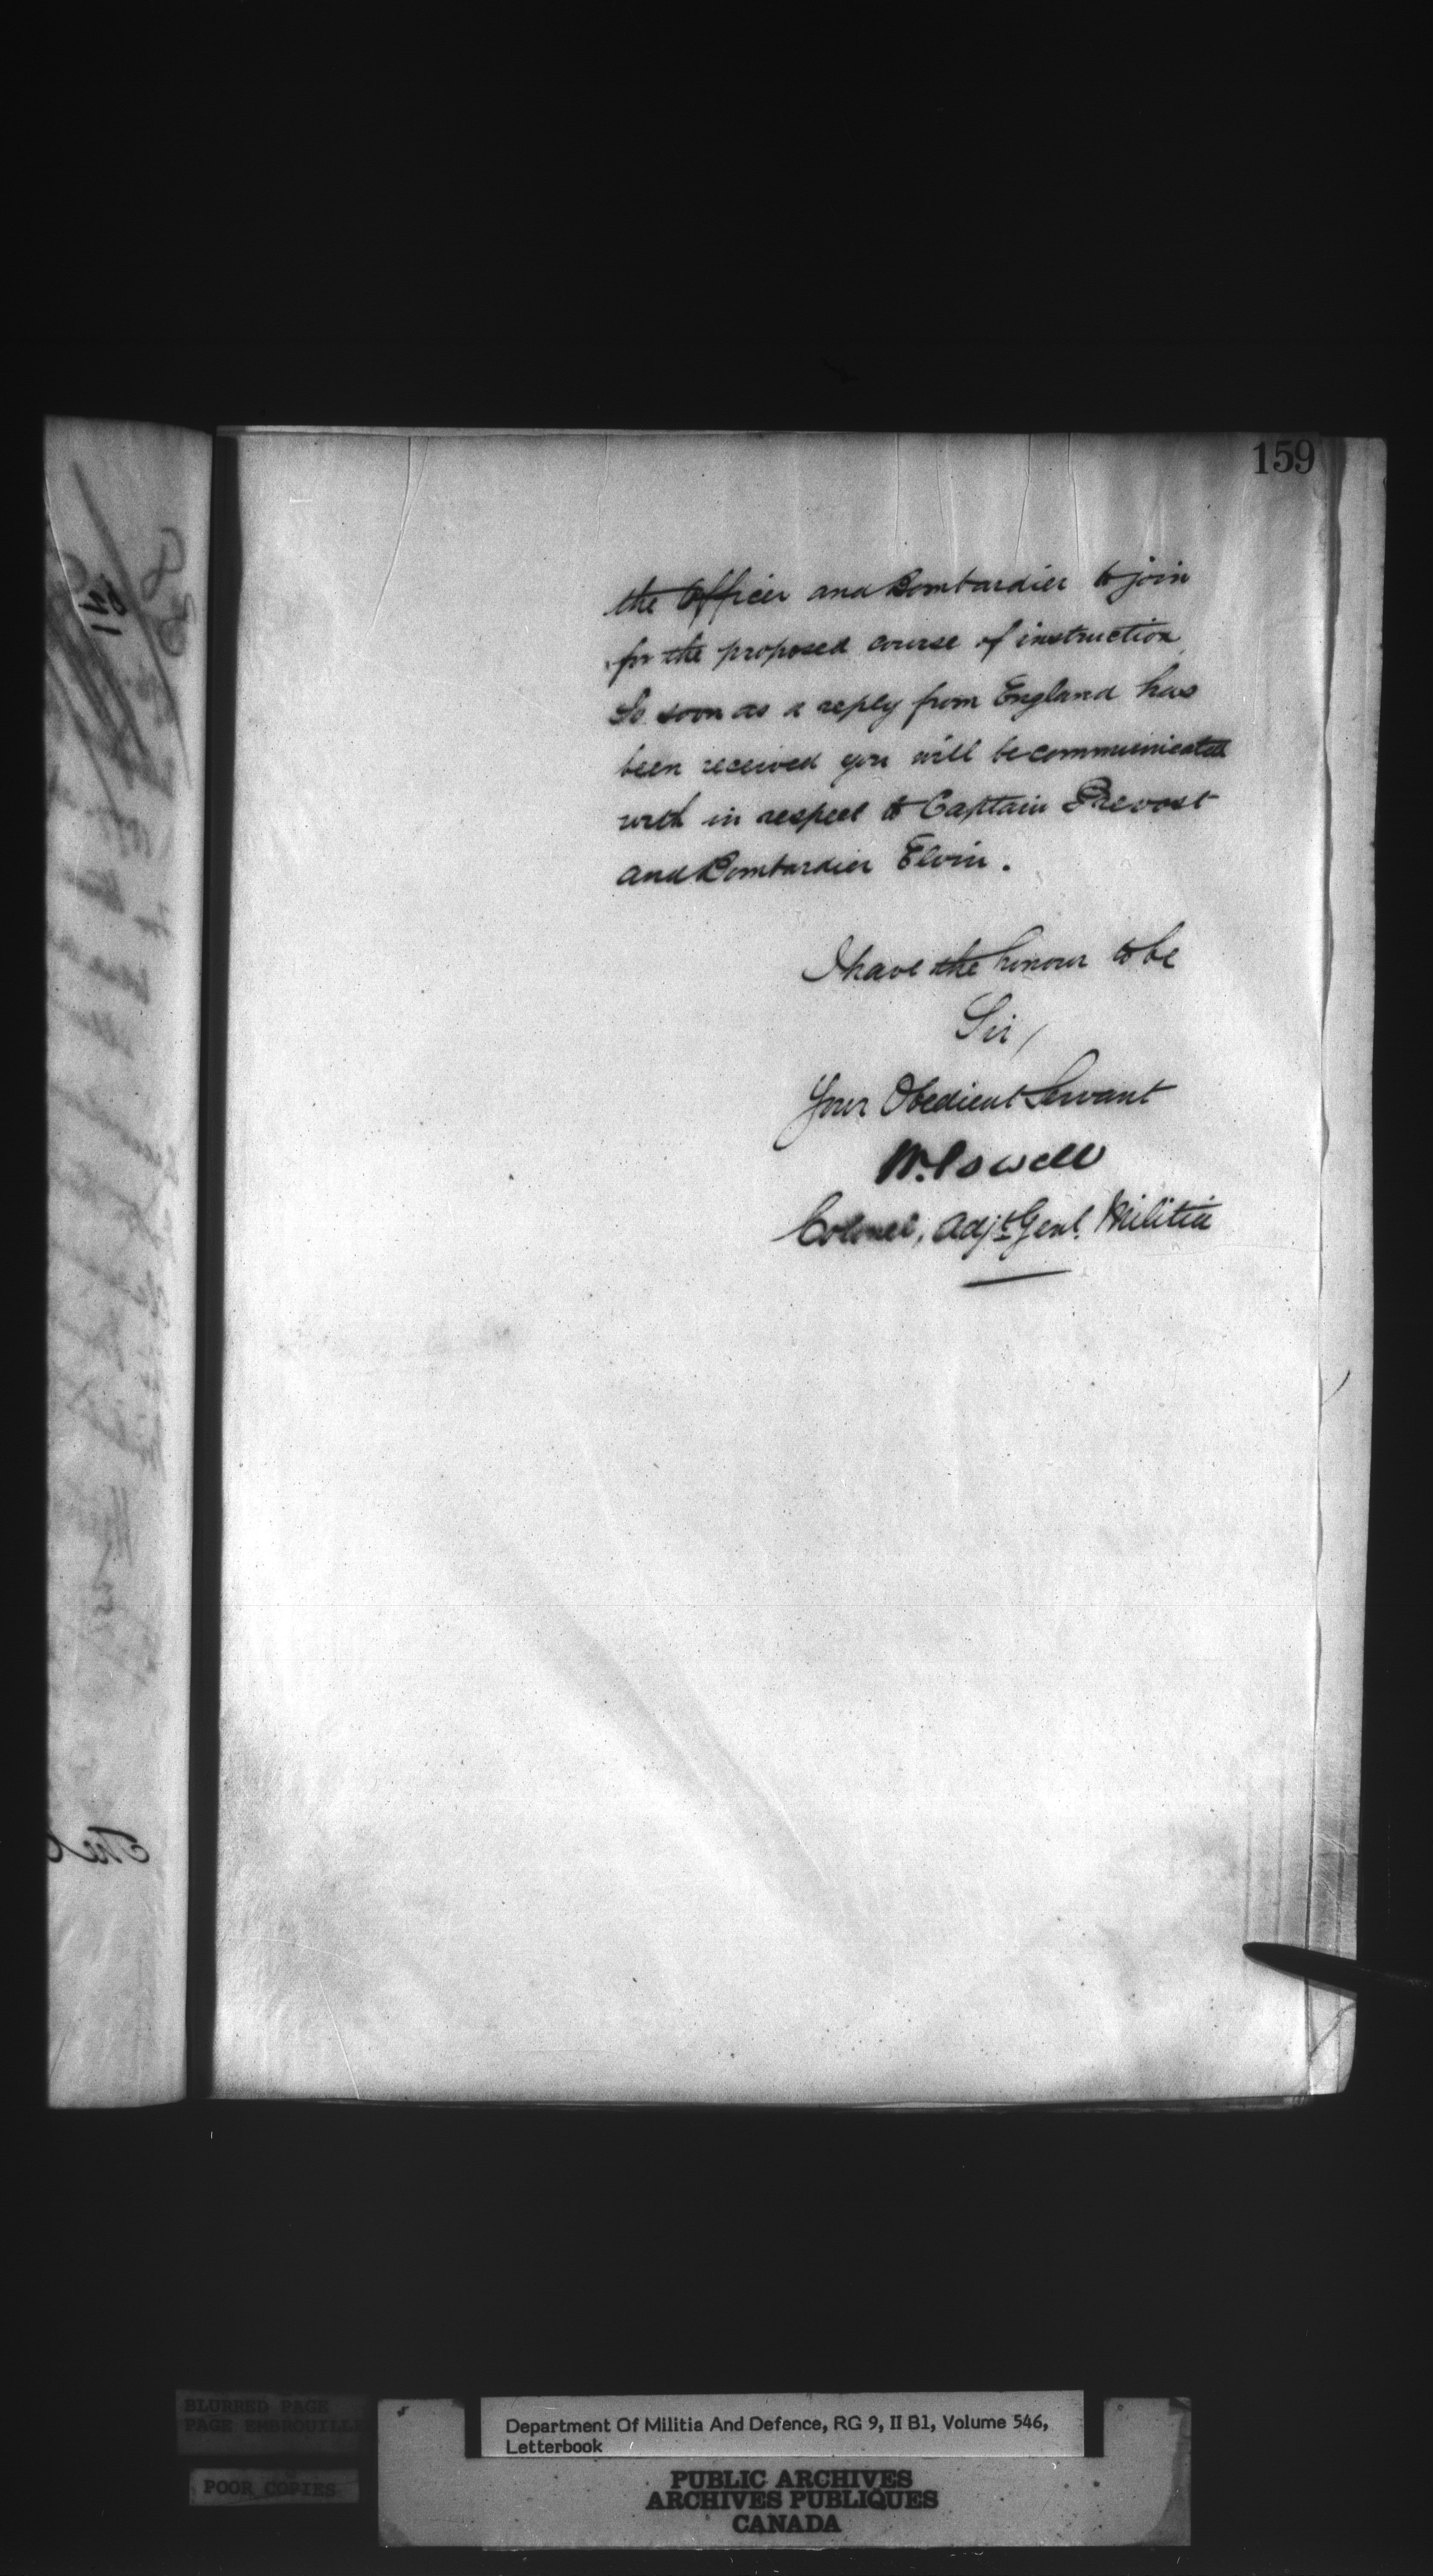 159
the Officer and Bombardier to join
for the proposed course of instruction,
So soon as a reply from England has
been received you will be communicated
with in respect to Captain Prevost
and Bombardier Elvin.
I have the honour to be
Sir,
Your Obedient Servant
W. Powell
Colonel, Adjt Genl. Militia
BLURRED PAGE
PAGE EMBROUILLE
POOR COPIES
Department Of Militia And Defence, RG 9, II B1, Volume 546,
Letterbook
PUBLIC ARCHIVES
ARCHIVES PUBLIQUES
CANADA